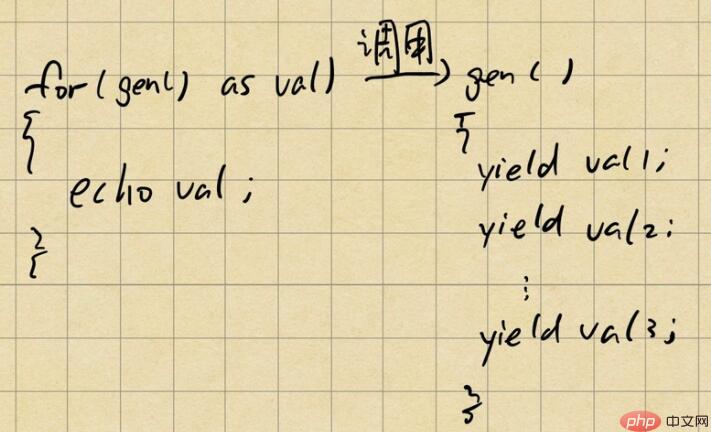 for(gen() as val) 调用 gen()
{ {
echo val; yield val1;
yield val2;
⋮
yield val3;
} }
php 中文网